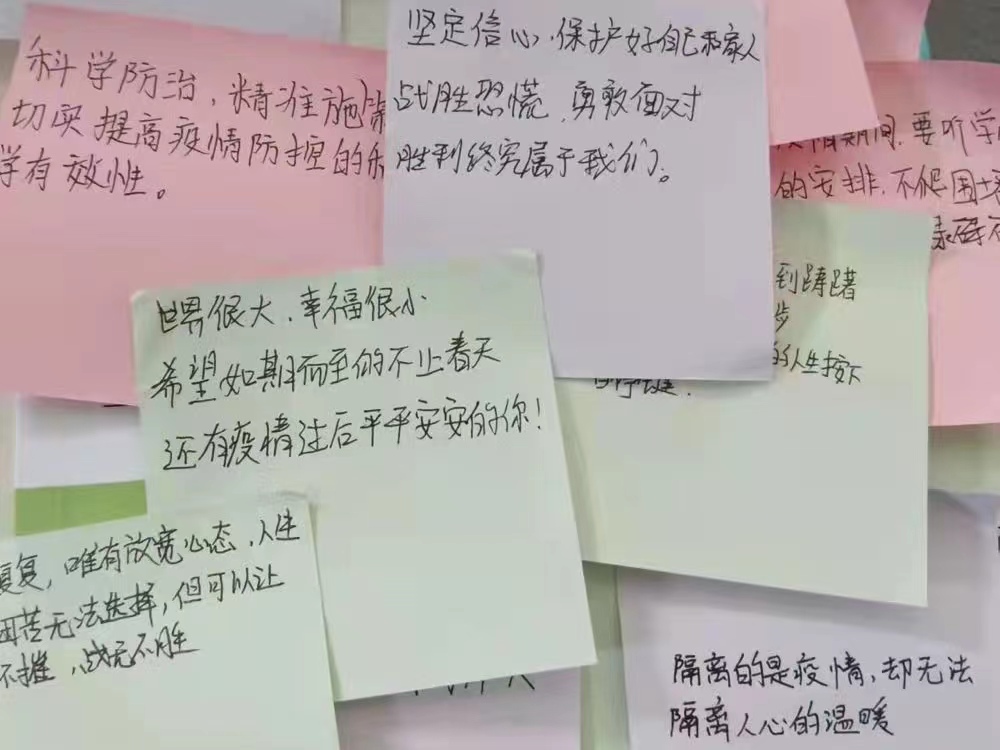 科学防治，精准施策
切实提高疫情防控的科
学有效性。
坚定信心，保护好自己和家人
战胜恐慌，勇敢面对
胜利终究属于我们。
情期间，要听学
的安排，不爬围墙
到踌躇
步
的人生按下
世界很大，幸福很小
希望如期而至的不止春天
还有疫情过后平平安安的你！
复，唯有放宽心态，人生
困苦无法选择，但可以让
不摧，战无不胜
隔离的是疫情，却无法
隔离人心的温暖